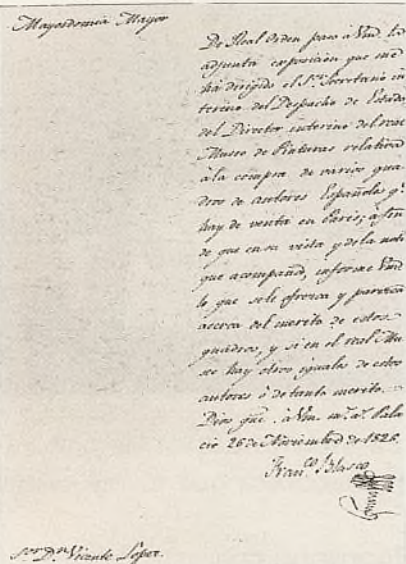 Mayordomía Mayor
De Real orden paso à Vmd. la
adjunta exposicion que me
ha dirigido el Sr. Secretario in
terino del Despacho de Estado,
del Director interino del real
Museo de Pinturas relativa
à la compra de varios qua
dros de autores Españoles qe.
hay de venta en Paris; a fin
de que en su vista y de la nota
que acompaña, informe Vmd.
lo que se le ofrezca y parezca
acerca del merito de estos
quadros, y si en el real Mu
seo hay otros iguales de estos
autores ò de tanto merito.
Dios gue. à Vm. ms. as. Pala
cio 26 de Noviembre de 1826.
Franco. Blasco
Sor. Dn. Vicente Lopez.